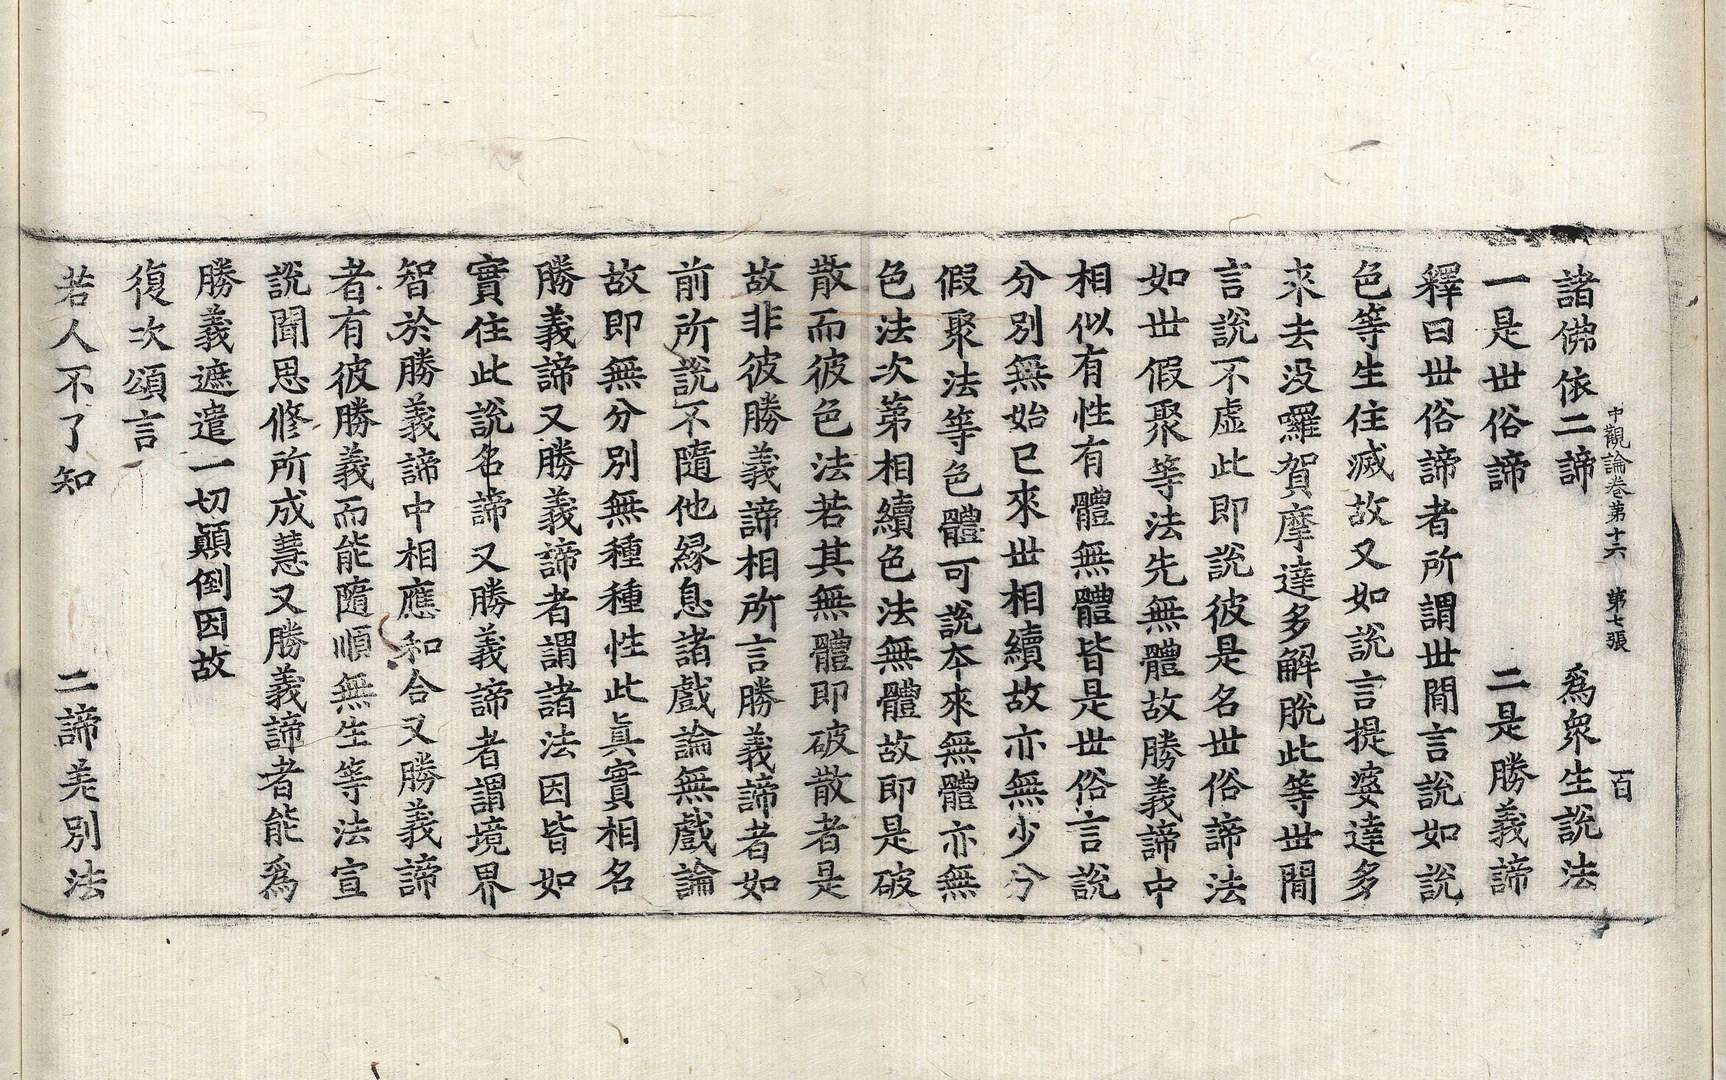 中觀論卷第十六　第七張　百
諸佛依二諦　爲衆生說法
一是世俗諦　二是勝義諦
釋曰世俗諦者所謂世間言說如說
色等生住滅故又如說言提婆達多
来去没囉賀摩達多解脫此等世間
言說不虛此即說彼是名世俗諦法
如世假聚等法先無體故勝義諦中
相似有性有體無體皆是世俗言說
分別無始已來世相續故亦無少分
假聚法等色體可說本來無體亦無
色法次第相續色法無體故即是破
散而彼色法若其無體即破散者是
故非彼勝義諦相所言勝義諦者如
前所說不隨他緣息諸戲論無戲論
故即無分別無種種性此真實相名
勝義諦又勝義諦者謂諸法因皆如
實住此說名諦又勝義諦者謂境界
智於勝義諦中相應和合又勝義諦
者有彼勝義而能隨順無生等法宣
說聞思修所成慧又勝義諦者能爲
勝義遮遣一切顚倒因故
復次頌言
若人不了知　二諦差別法